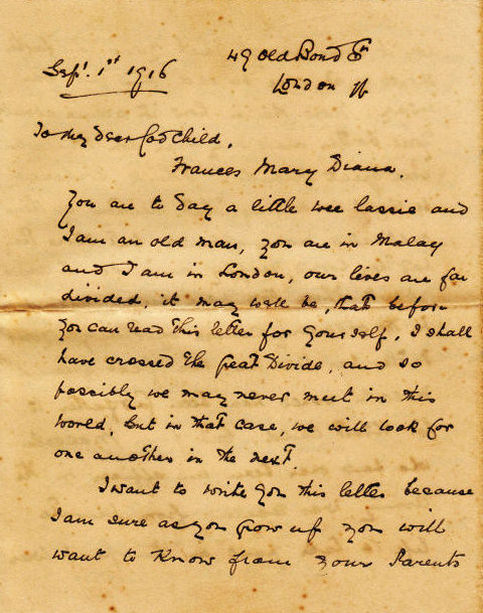 49 Old Bond St
Sept. 1st 1916
London W
To my dear Godchild,
Frances Mary Diana.
You are to day a little wee lassie and
I am an old man, you are in Malay
and I am in London, our lives are far
divided, it may well be, that before
you can read this letter for yourself, I shall
have crossed the great Divide, and so
possibly we may never meet in this
world, but in that case, we will look for
one another in the next.
I want to write you this letter because
I am sure as you grow up you will
want to know from your Parents